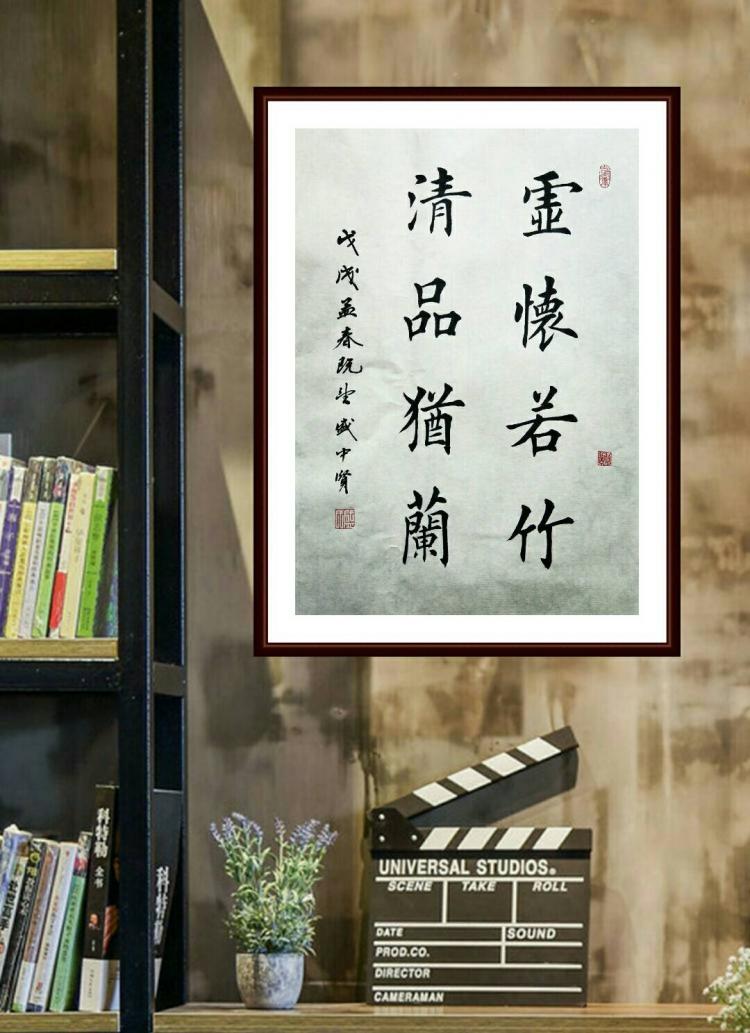 虛懷若竹
清品猶蘭
戊戌孟春阮堂盛中賢
科特勒
全书
科特
UNIVERSAL STUDIOS®
SCENE TAKE ROLL
DATE SOUND
PROD.CO.
DIRECTOR
CAMERAMAN